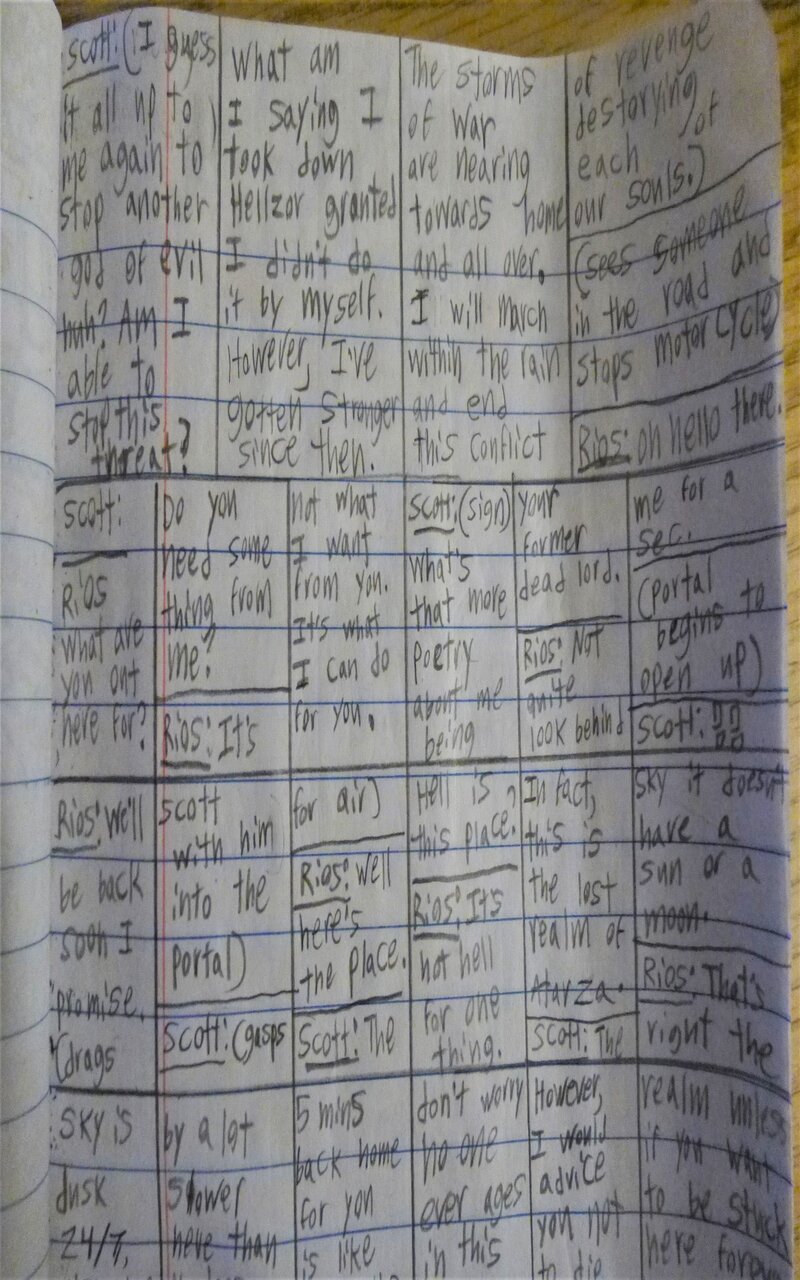 Scott: (I guess
It all up to
me again to
stop another
god of evil
huh? Am I
able to
stop this
threat?
What am
I saying I
took down
Hellzor granted
I didn't do
it by myself.
However, I've
gotten stronger
since then.
The storms
of war
are nearing
towards home
and all over.
I will march
within the rain
and end
this conflict
of revenge
destorying
each of
our souls.)
(sees someone
in the road and
stops motorcycle)
Rios: oh hello there.
Scott:
Rios
what are
you out
here for?
Do you
need some
thing from
me?
Rios: It's
not what
I want
from you.
It's what
I can do
for you.
Scott: (sign)
what's
that more
poetry
about me
being
your
former
dead lord.
Rios: Not
quite
look behind
me for a
sec.
(portal
begins to
open up)
Scott:
Rios: We'll
be back
soon I
promise.
(drags
Scott
with him
into the
portal)
Scott: (gasps
for air)
Rios: Well
here's
the place.
Scott: The
Hell is
this place?
Rios: It's
not hell
for one
thing.
In fact,
this is
the lost
realm of
Atarza.
Scott: The
sky it doesn't
have a
sun or a
moon.
Rios: That's
right the
sky is
dusk
24/7,
by a lot
slower
here than
5 mins
back home
for you
is like
don't worry
no one
ever ages
in this
However,
I would
advice
you not
to die
realm unless
if you want
to be stuck
here forever